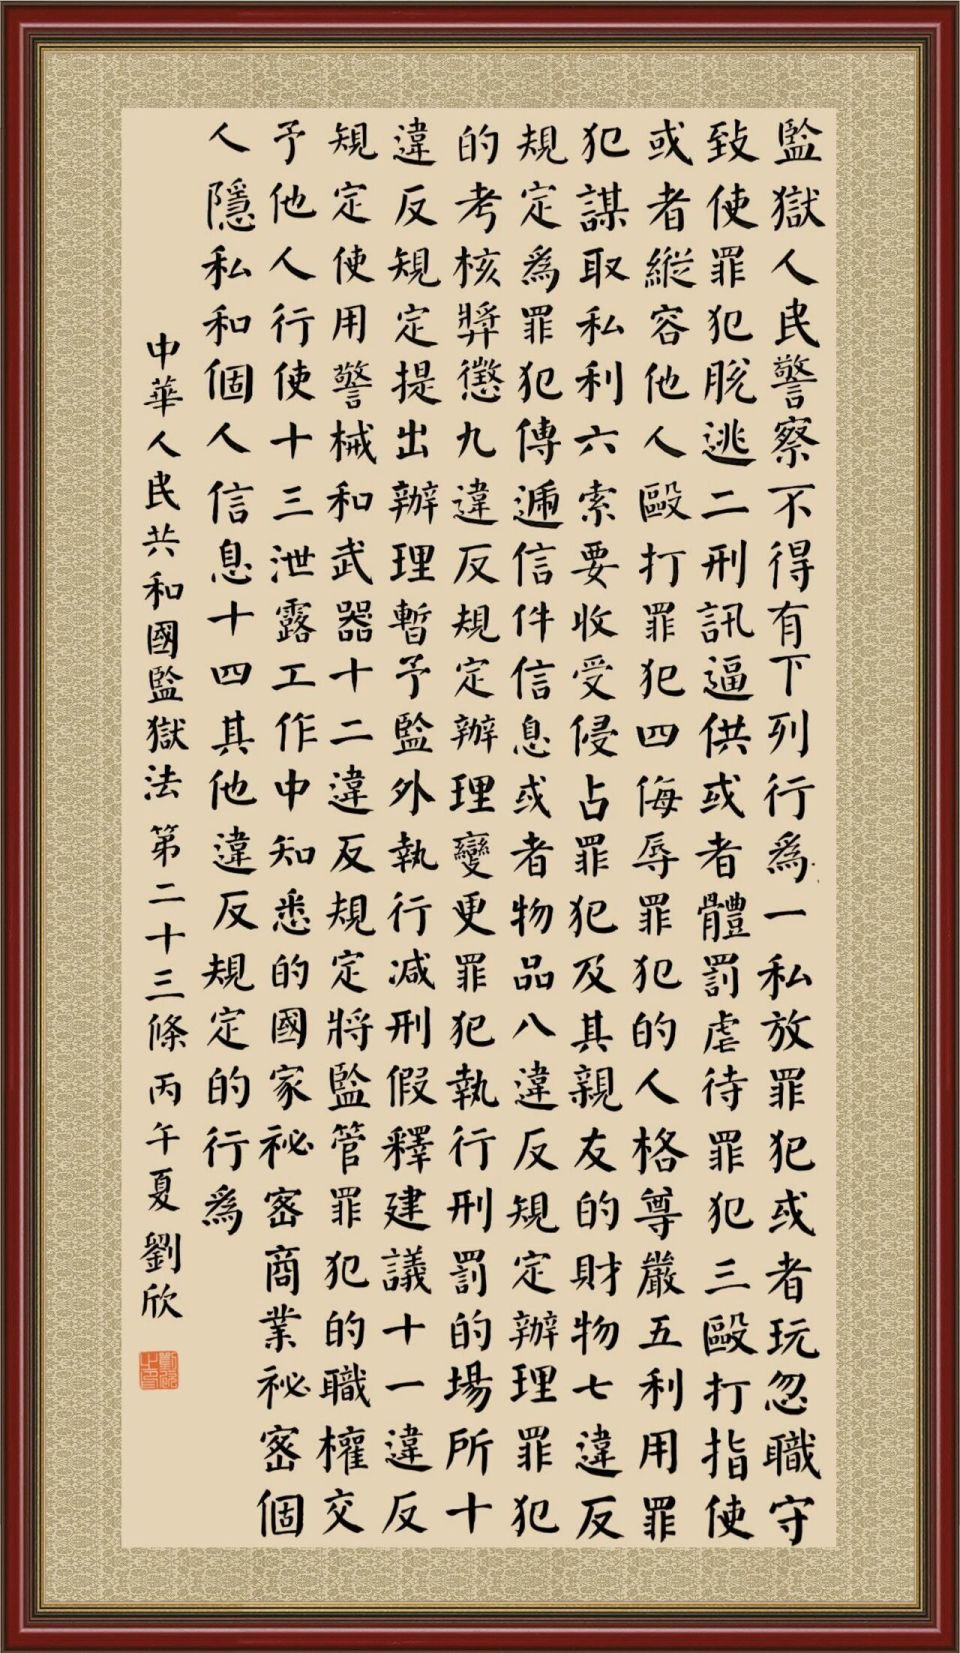 監獄人民警察不得有下列行為一私放罪犯或者玩忽職守
致使罪犯脫逃二刑訊逼供或者體罰虐待罪犯三毆打指使
或者縱容他人毆打罪犯四侮辱罪犯的人格尊嚴五利用罪
犯謀取私利六索要收受侵占罪犯及其親友的財物七違反
規定為罪犯傳遞信件信息或者物品八違反規定辦理罪犯
的考核獎懲九違反規定辦理變更罪犯執行刑罰的場所十
違反規定提出辦理暫予監外執行減刑假釋建議十一違反
規定使用警械和武器十二違反規定將監管罪犯的職權交
予他人行使十三泄露工作中知悉的國家祕密商業祕密個
人隱私和個人信息十四其他違反規定的行為
中華人民共和國監獄法 第二十三條 丙午夏 劉欣